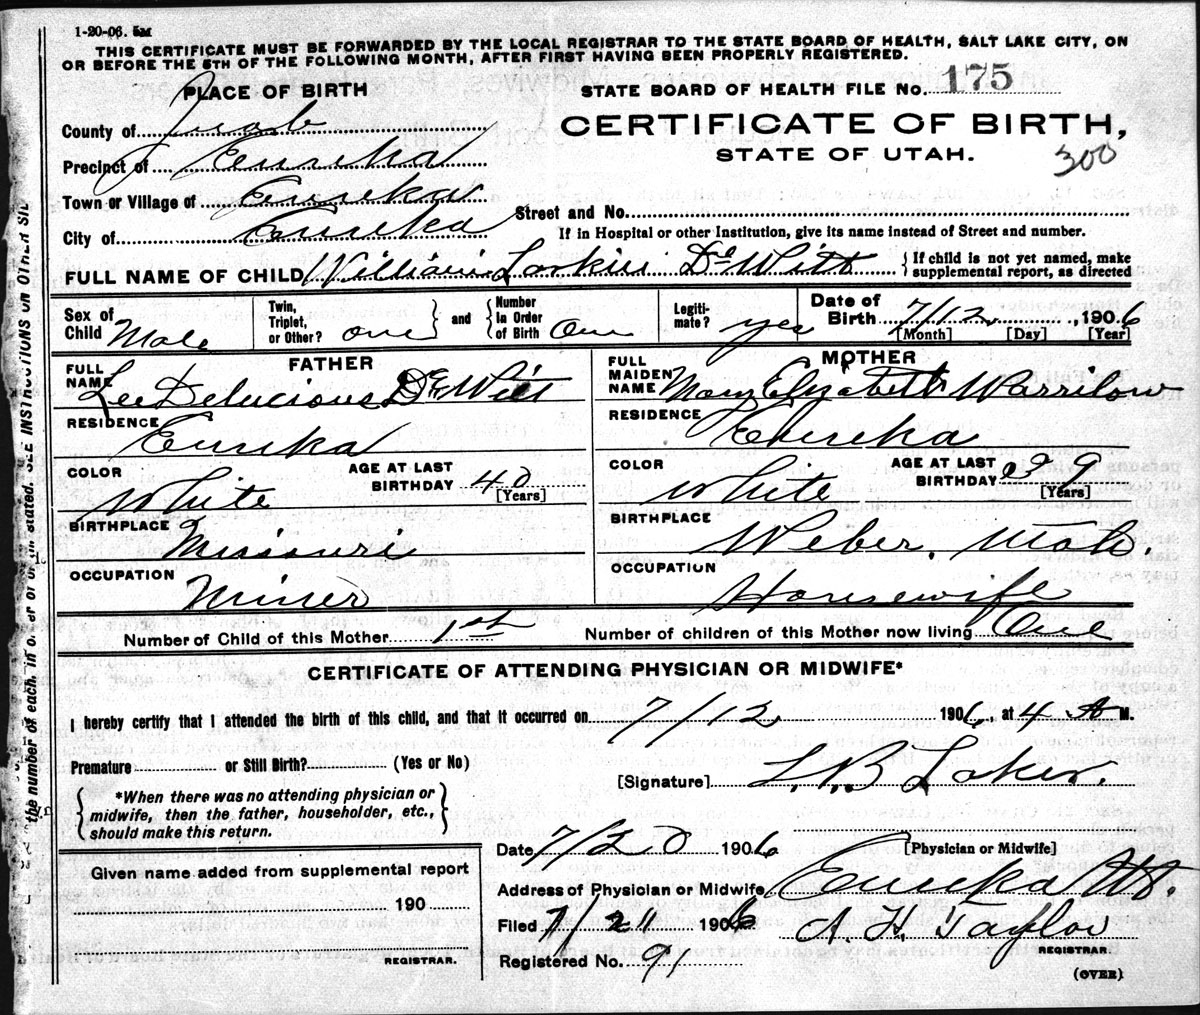 1-20-06. 5M
THIS CERTIFICATE MUST BE FORWARDED BY THE LOCAL REGISTRAR TO THE STATE BOARD OF HEALTH, SALT LAKE CITY, ON
OR BEFORE THE 5TH OF THE FOLLOWING MONTH, AFTER FIRST HAVING BEEN PROPERLY REGISTERED.
PLACE OF BIRTH
STATE BOARD OF HEALTH FILE NO. 175
County of Juab
CERTIFICATE OF BIRTH,
STATE OF UTAH.
300
Precinct of Eureka
Town or Village of Eureka
City of Eureka
Street and No.
If in Hospital or other Institution, give its name instead of Street and number.
FULL NAME OF CHILD William Larkin De Witt { If child is not yet named, make
supplemental report, as directed
Sex of Child Male
Twin, Triplet, or Other? one } and { Number in Order of Birth One
Legiti-mate? yes
Date of Birth 7/12, 1906
[Month] [Day] [Year]
FATHER
FULL NAME Lee Delucious De Witt
RESIDENCE Eureka
COLOR White
AGE AT LAST BIRTHDAY 40 [Years]
BIRTHPLACE Missouri
OCCUPATION Miner
MOTHER
FULL MAIDEN NAME Mary Elizabeth Warrilow
RESIDENCE Eureka
COLOR White
AGE AT LAST BIRTHDAY 39 [Years]
BIRTHPLACE Weber, Utah.
OCCUPATION Housewife
Number of Child of this Mother 1st Number of children of this Mother now living One
CERTIFICATE OF ATTENDING PHYSICIAN OR MIDWIFE*
I hereby certify that I attended the birth of this child, and that it occurred on 7/12 1906, at 4 A M.
Premature or Still Birth? (Yes or No)
[Signature] L. B. Laker.
{ *When there was no attending physician or
midwife, then the father, householder, etc.,
should make this return. }
Date 7/20 1906 [Physician or Midwife]
Given name added from supplemental report
190
REGISTRAR.
Address of Physician or Midwife Eureka Ut.
Filed 7/21 1906 A. H. Taylor
REGISTRAR.
Registered No. 91
(OVER)
the number of each, in order of birth stated. SEE INSTRUCTIONS ON OTHER SIDE